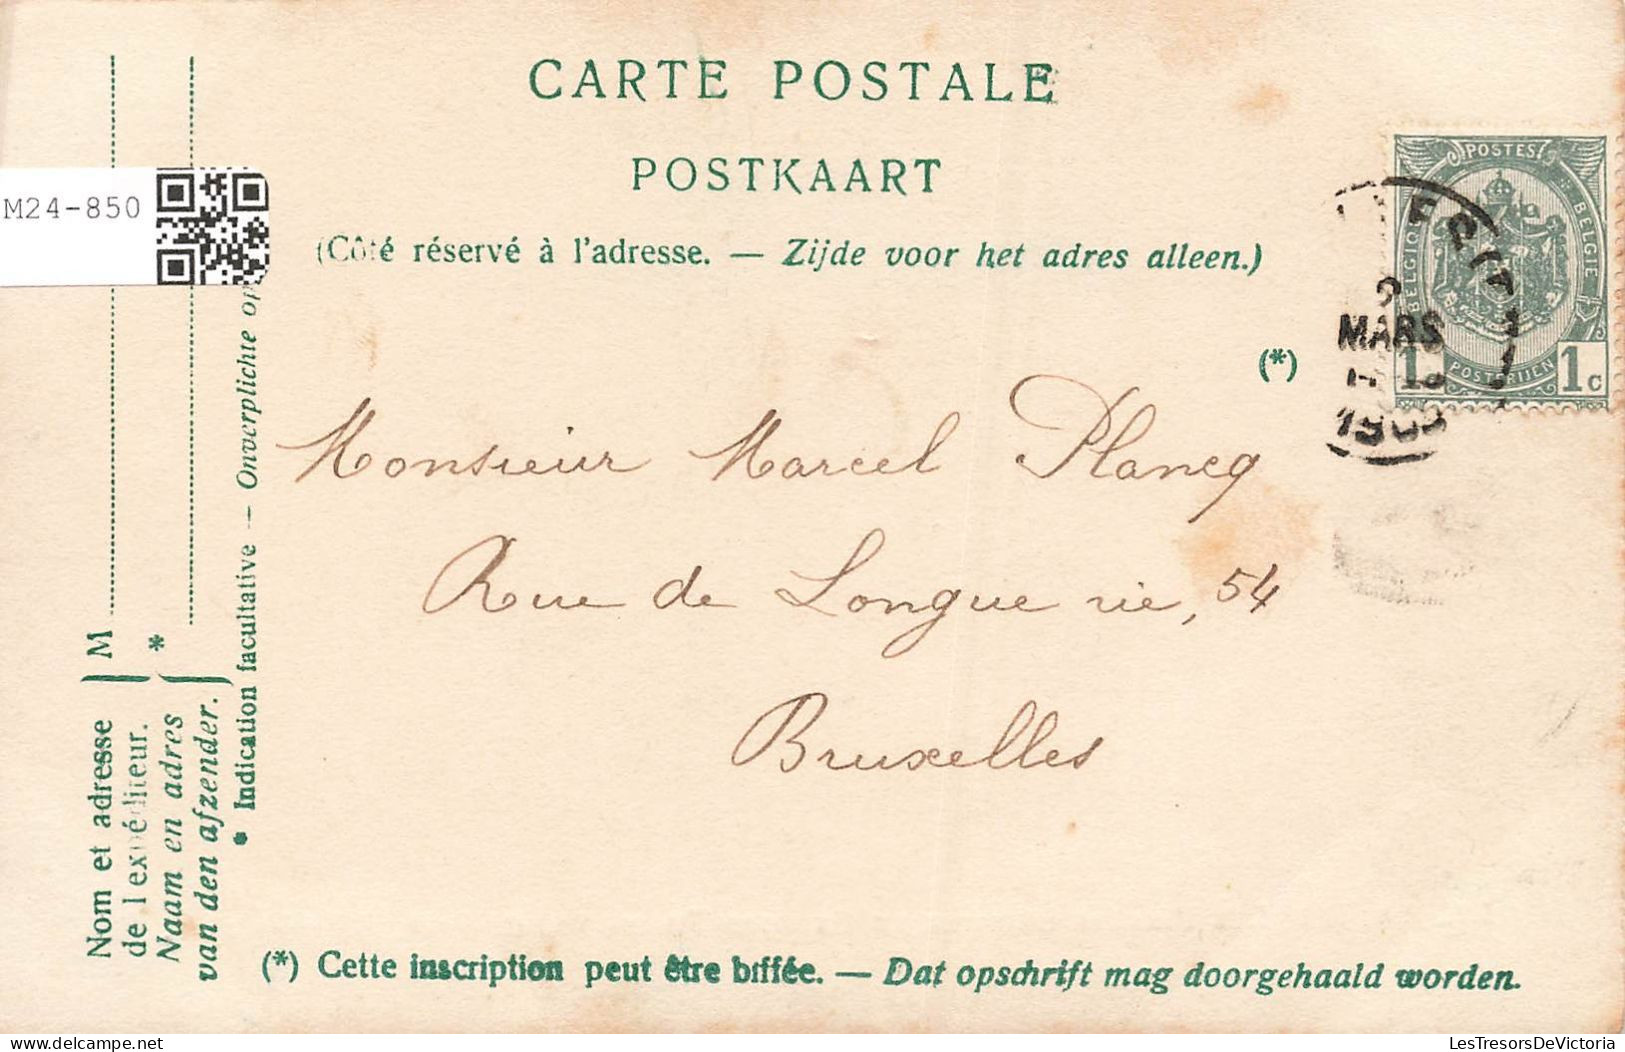 CARTE POSTALE
POSTKAART
(Côté réservé à l'adresse. — Zijde voor het adres alleen.)
M24-850
POSTES
BELGIQUE
BELGIE
POSTERIJEN
1 1c
MARS
(*)
Monsieur Marcel Plancq
Rue de Longue vie, 54
Bruxelles
M
*
Nom et adresse
de l'expéditeur.
Naam en adres
van den afzender.
* Indication facultative — Onverplichte
(*) Cette inscription peut être biffée. — Dat opschrift mag doorgehaald worden.
LesTresorsDeVictoria
delcampe.net